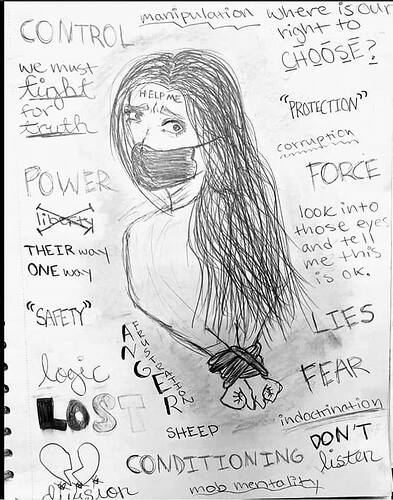 CONTROL
manipulation
where is our
right to
CHOOSE?
we must
fight
for
truth
HELP ME
"PROTECTION"
corruption
POWER
FORCE
liberty
THEIR way
ONE way
look into
those eyes
and tell
me this
is ok.
"SAFETY"
LIES
ANGER
FRUSTRATION
logic
LOST
FEAR
SHEEP
indoctrination
DON'T
listen
CONDITIONING
division
mob mentality